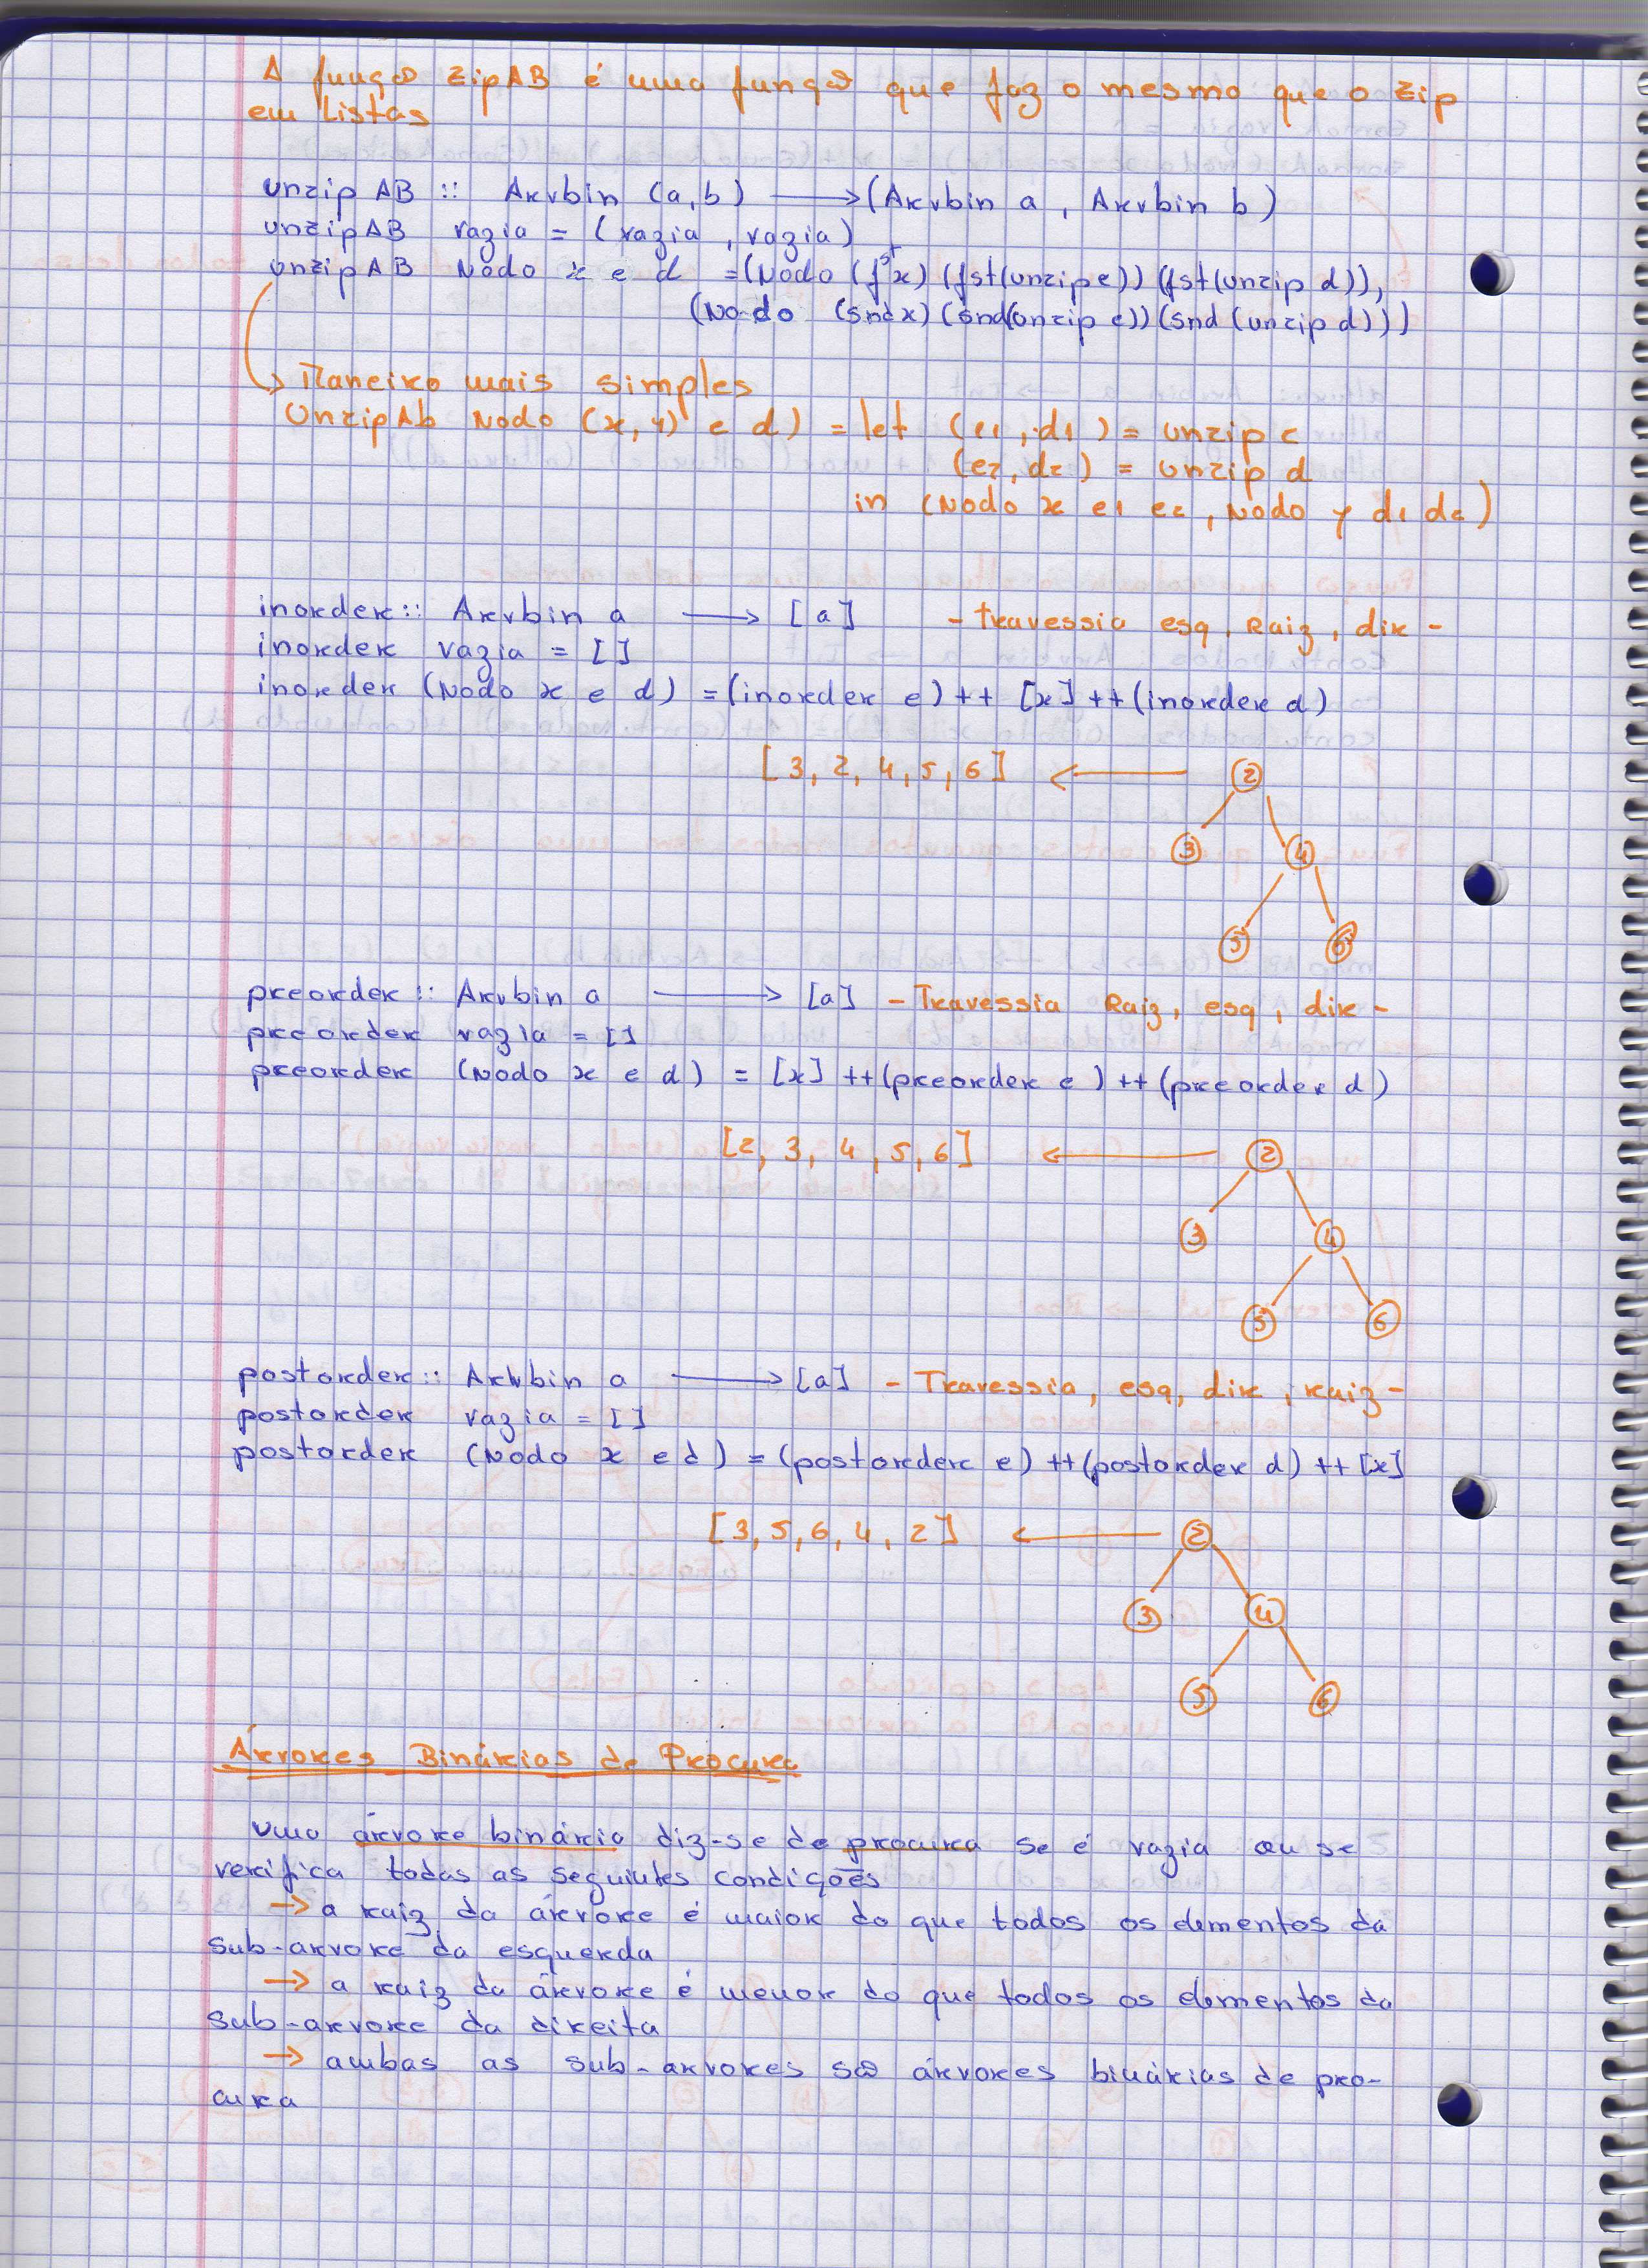 A função zipAB é uma função que faz o mesmo que o zip
em Listas
unzipAB :: Arvbin (a,b) ⟶ (Arvbin a , Arvbin b)
unzipAB vazia = (vazia , vazia)
unzipAB Nodo x e d = (Nodo (fst x) (fst(unzip e)) (fst(unzip d)),
(Nodo (snd x) (snd(unzip e)) (snd (unzip d)))
→ Maneira mais simples
UnzipAb Nodo (x,y) e d) = let (e1 , d1 ) = unzip e
(e2, d2 ) = unzip d
in (Nodo x e1 e2 , Nodo y d1 d2 )
inorder :: Arvbin a ⟶ [a] - Travessia esq, Raiz, dir -
inorder vazia = []
inorder (Nodo x e d) = (inorder e) ++ [x] ++ (inorder d)
[3, 2, 4, 5, 6] ⟵ 2
3 4
5 6
preorder :: Arvbin a ⟶ [a] - Travessia Raiz, esq, dir -
preorder vazia = []
preorder (Nodo x e d) = [x] ++ (preorder e) ++ (preorder d)
[2, 3, 4, 5, 6] ⟵ 2
3 4
5 6
postorder :: Arvbin a ⟶ [a] - Travessia, esq, dir, raiz -
postorder vazia = []
postorder (Nodo x e d) = (postorder e) ++ (postorder d) ++ [x]
[3, 5, 6, 4, 2] ⟵ 2
3 4
5 6
Árvores Binárias de Procura
Uma árvore binária diz-se de procura se é vazia ou se
verifica todas as seguintes condições
→ a raiz da árvore é maior do que todos os elementos da
sub-arvore da esquerda
→ a raiz da árvore é menor do que todos os elementos da
sub-arvore da direita
→ ambas as sub-arvores são árvores binárias de pro-
cura